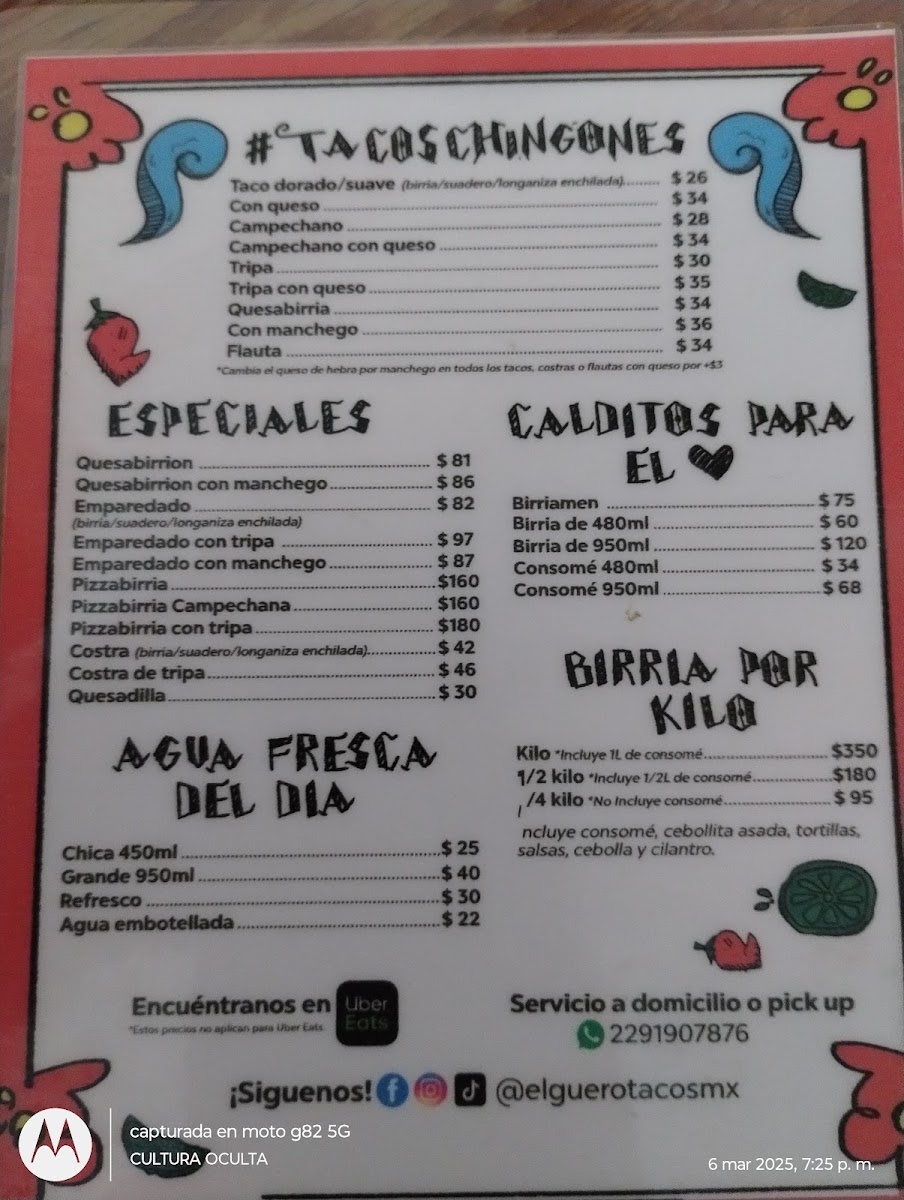 #TACOSCHINGONES
Taco dorado/suave (birria/suadero/longaniza enchilada)......... $ 26
Con queso ........ $ 34
Campechano ........ $ 28
Campechano con queso ........ $ 34
Tripa ........ $ 30
Tripa con queso ........ $ 35
Quesabirria ........ $ 34
Con manchego ........ $ 36
Flauta ........ $ 34
*Cambia el queso de hebra por manchego en todos los tacos, costras o flautas con queso por +$3
ESPECIALES
Quesabirrion ........ $ 81
Quesabirrion con manchego ........ $ 86
Emparedado ........ $ 82
(birria/suadero/longaniza enchilada)
Emparedado con tripa ........ $ 97
Emparedado con manchego ........ $ 87
Pizzabirria ........ $160
Pizzabirria Campechana ........ $160
Pizzabirria con tripa ........ $180
Costra (birria/suadero/longaniza enchilada)........ $ 42
Costra de tripa ........ $ 46
Quesadilla ........ $ 30
CALDITOS PARA
EL
Birriamen ........ $ 75
Birria de 480ml ........ $ 60
Birria de 950ml ........ $ 120
Consomé 480ml ........ $ 34
Consomé 950ml ........ $ 68
BIRRIA POR
KILO
Kilo *Incluye 1L de consomé ........ $350
1/2 kilo *Incluye 1/2L de consomé ........ $180
/4 kilo *No Incluye consomé ........ $ 95
ncluye consomé, cebollita asada, tortillas,
salsas, cebolla y cilantro.
AGUA FRESCA
DEL DIA
Chica 450ml ........ $ 25
Grande 950ml ........ $ 40
Refresco ........ $ 30
Agua embotellada ........ $ 22
Encuéntranos en Uber Eats
*Estos precios no aplican para Uber Eats
Servicio a domicilio o pick up
2291907876
¡Siguenos! @elguerotacosmx
capturada en moto g82 5G
CULTURA OCULTA
6 mar 2025, 7:25 p. m.